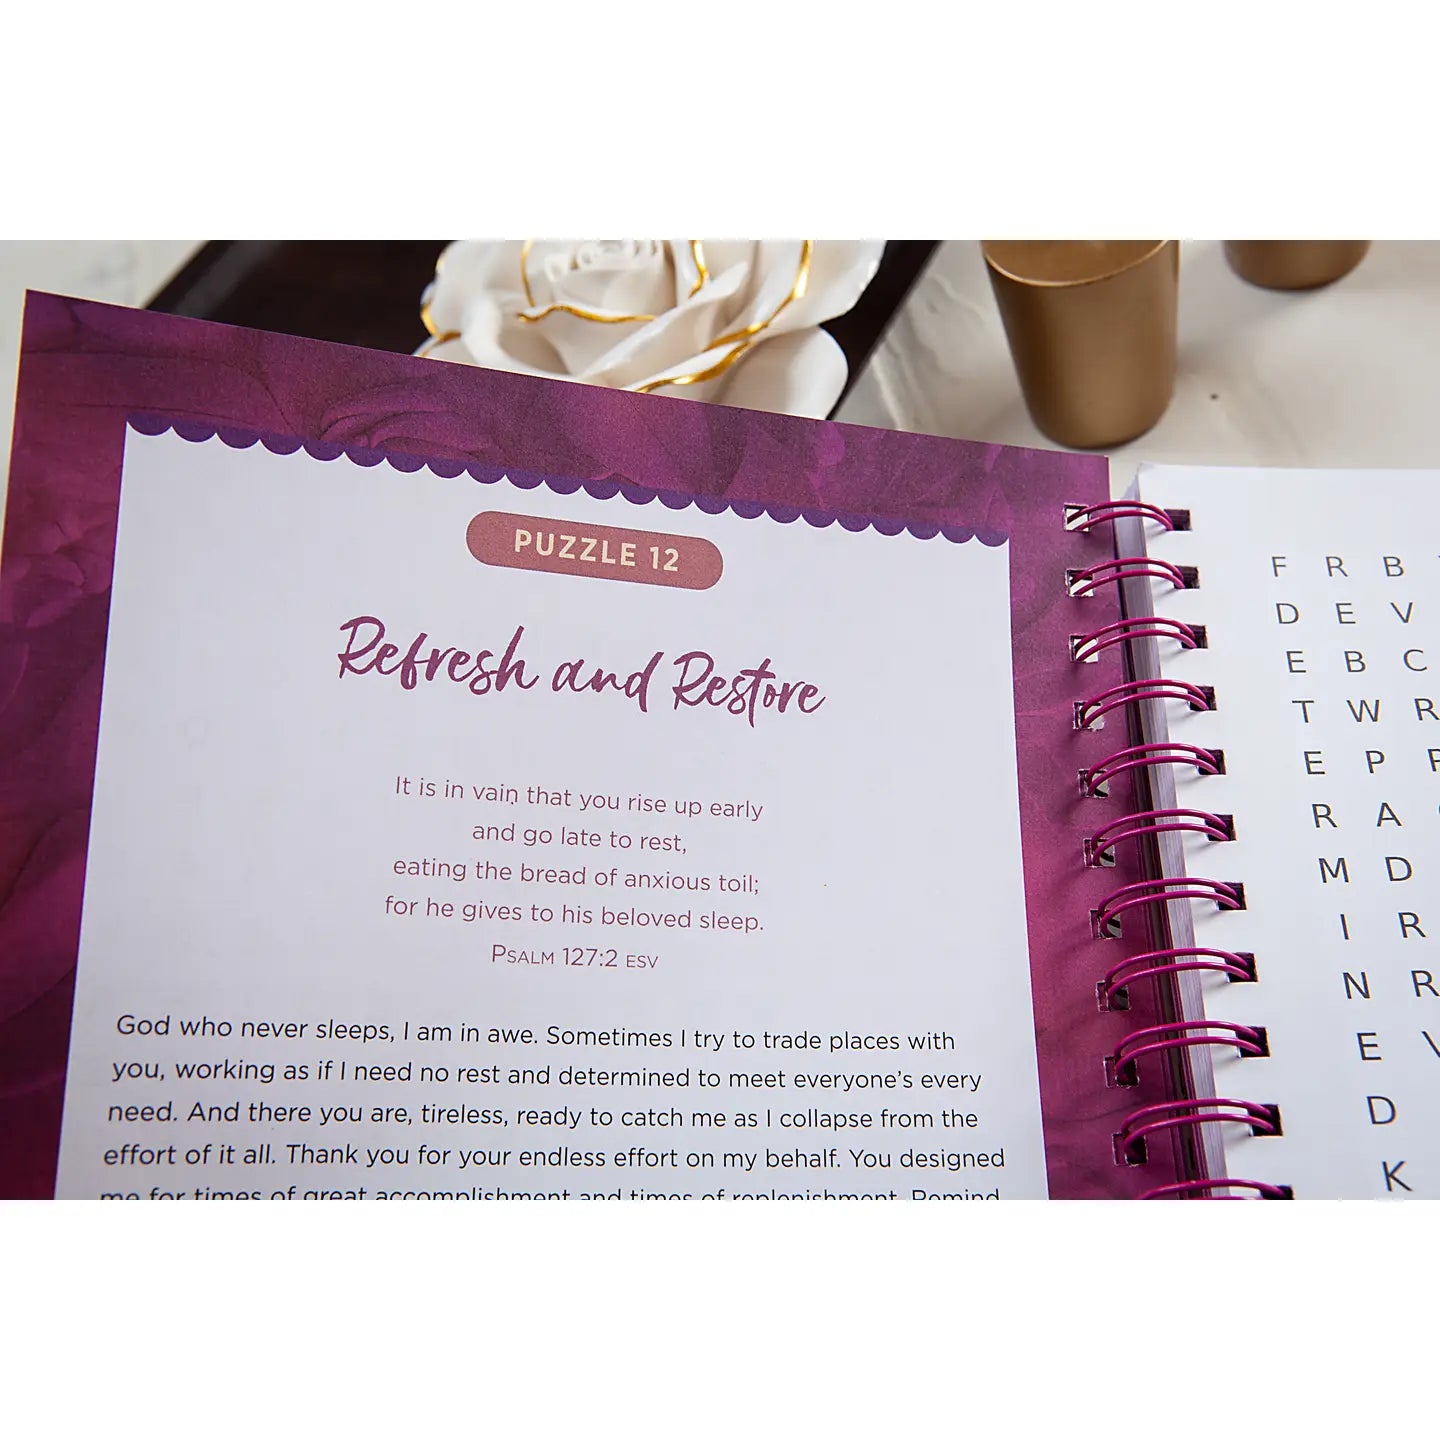 PUZZLE 12
Refresh and Restore
It is in vain that you rise up early
and go late to rest,
eating the bread of anxious toil;
for he gives to his beloved sleep.
PSALM 127:2 ESV
God who never sleeps, I am in awe. Sometimes I try to trade places with
you, working as if I need no rest and determined to meet everyone's every
need. And there you are, tireless, ready to catch me as I collapse from the
effort of it all. Thank you for your endless effort on my behalf. You designed
me for times of great accomplishment and times of replenishment. Remind
F R B
D E V
E B C
T W R
E P
R A
M D
I R
N R
E
D
K